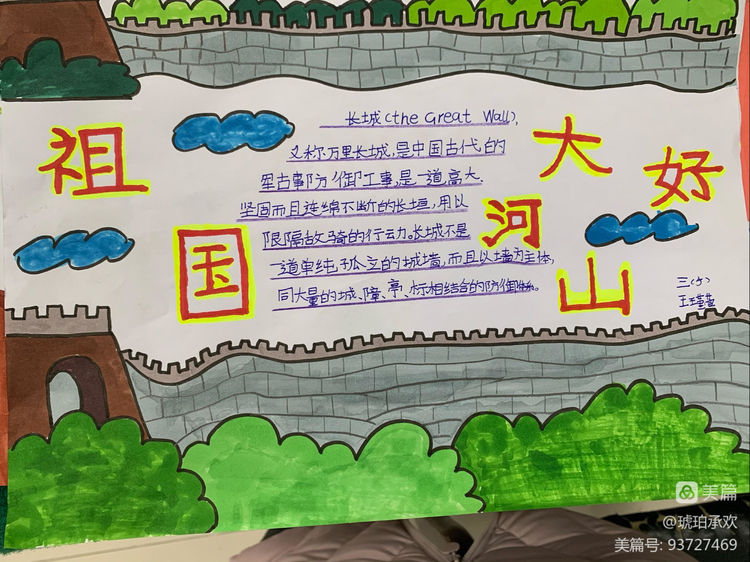 祖国
大好
河山
长城(the Great Wall),
又称万里长城,是中国古代的
军古事防御工事,是一道高大
坚固而且连绵不断的长垣,用以
限隔敌骑的行动。长城不是
一道单纯孤立的城墙,而且以墙为主体,
同大量的城、障、亭、标相结合的防御体。
三(5)
美篇
@琥珀承欢
美篇号: 93727469